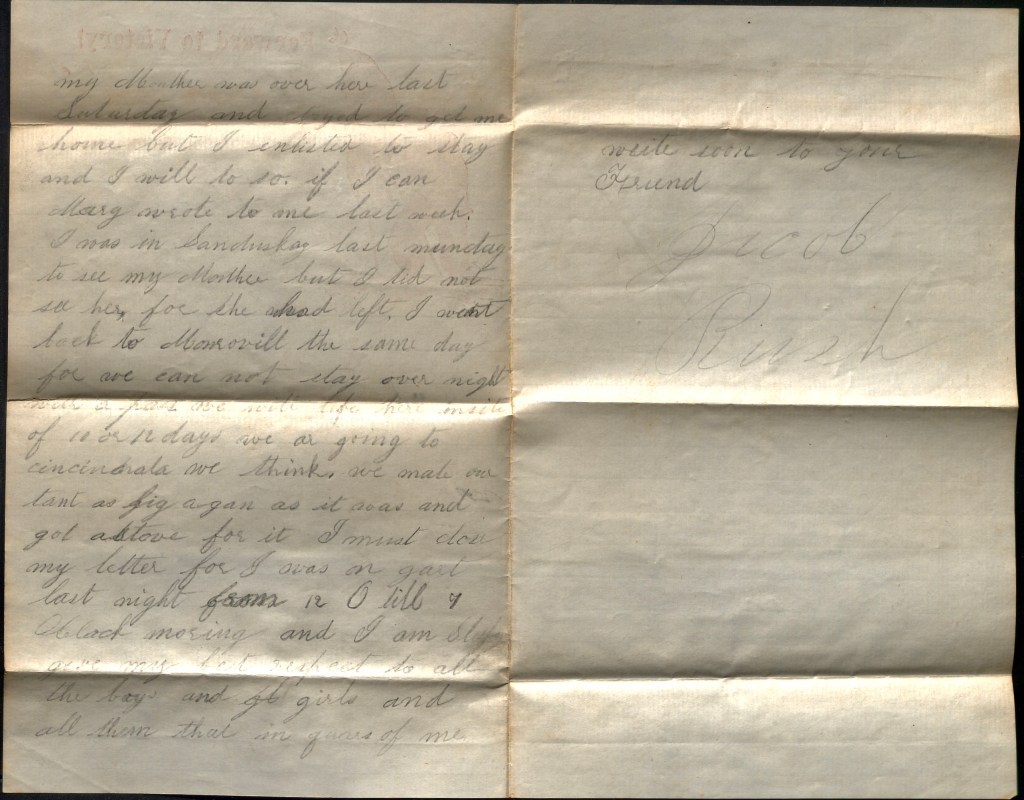 "Forward to Victory!
my Monther was over here last
Saturday and tryed to get me
home but I enlisted to stay
and I will to so. if I can
Mary wrote to me last week.
I was in Sanduskay last munday
to see my Morther but I did not
se her, for she had left. I went
back to Monrovill the same day
for we can not stay over night
with a pass we will live here insite
of 10 or 12 days we ar going to
cincindnala we think. we made our
tant as big agan as it was and
got a stove for it I must close
my letter for I was on gart
last night from 12 O till 7
Oclock morning and I am
give my best respect to all
the boys and girls and
all them that in quars of me
write soon to your
Friend
Jacob
Rush